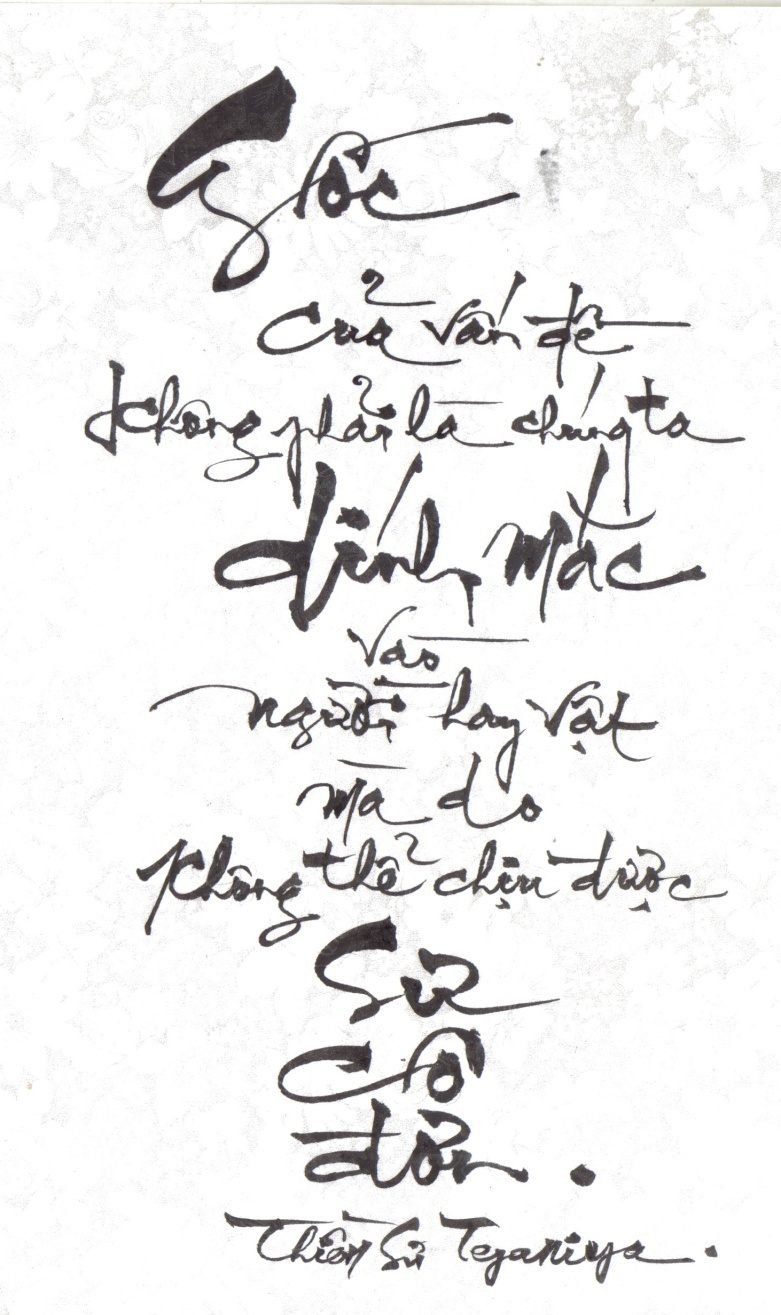 Gốc
của vấn đề
không phải là chúng ta
dính mắc
vào
người hay vật
mà do
không thể chịu được
sự
cô
đơn.
Thiền Sư Tejaniya.